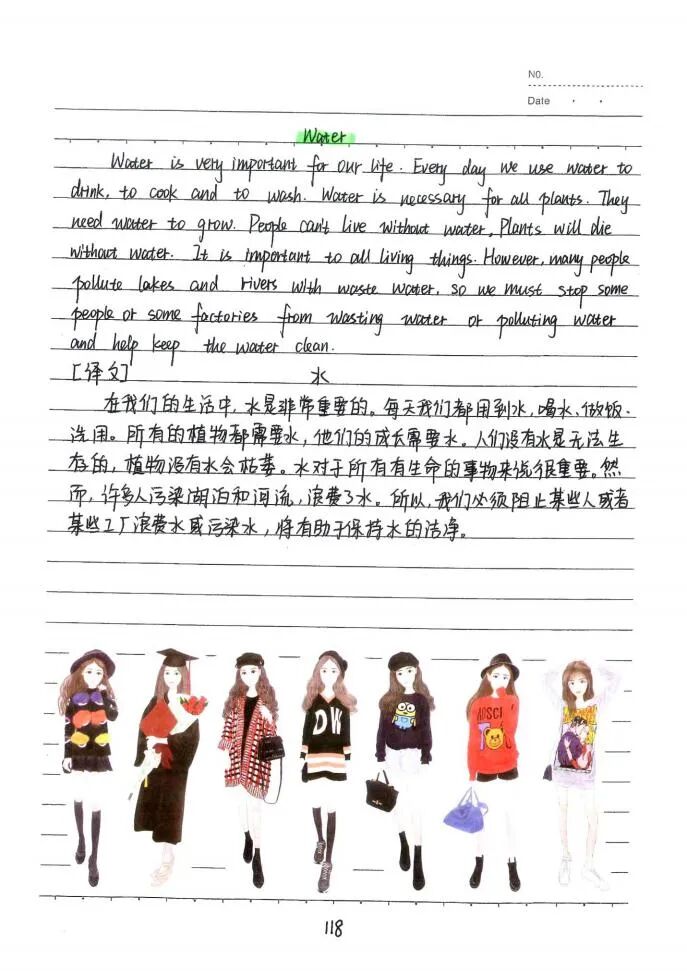 NO.
Date
Water
Water is very important for our life. Every day we use water to
drink, to cook and to wash. Water is necessary for all plants. They
need water to grow. People can't live without water, Plants will die
without water. It is important to all living things. However, many people
pollute lakes and rivers with waste water, so we must stop some
people or some factories from wasting water or polluting water
and help keep the water clean.
[译文]
水
在我们的生活中,水是非常重要的。每天我们都用到水,喝水、做饭、
洗用。所有的植物都需要水,他们的成长需要水。人们没有水是无法生
存的,植物没有水会枯萎。水对于所有有生命的事物来说很重要。然
而,许多人污染湖泊和河流,浪费了水。所以,我们必须阻止某些人或者
某些工厂浪费水或污染水,将有助于保持水的洁净。
DW
MOSCI
118